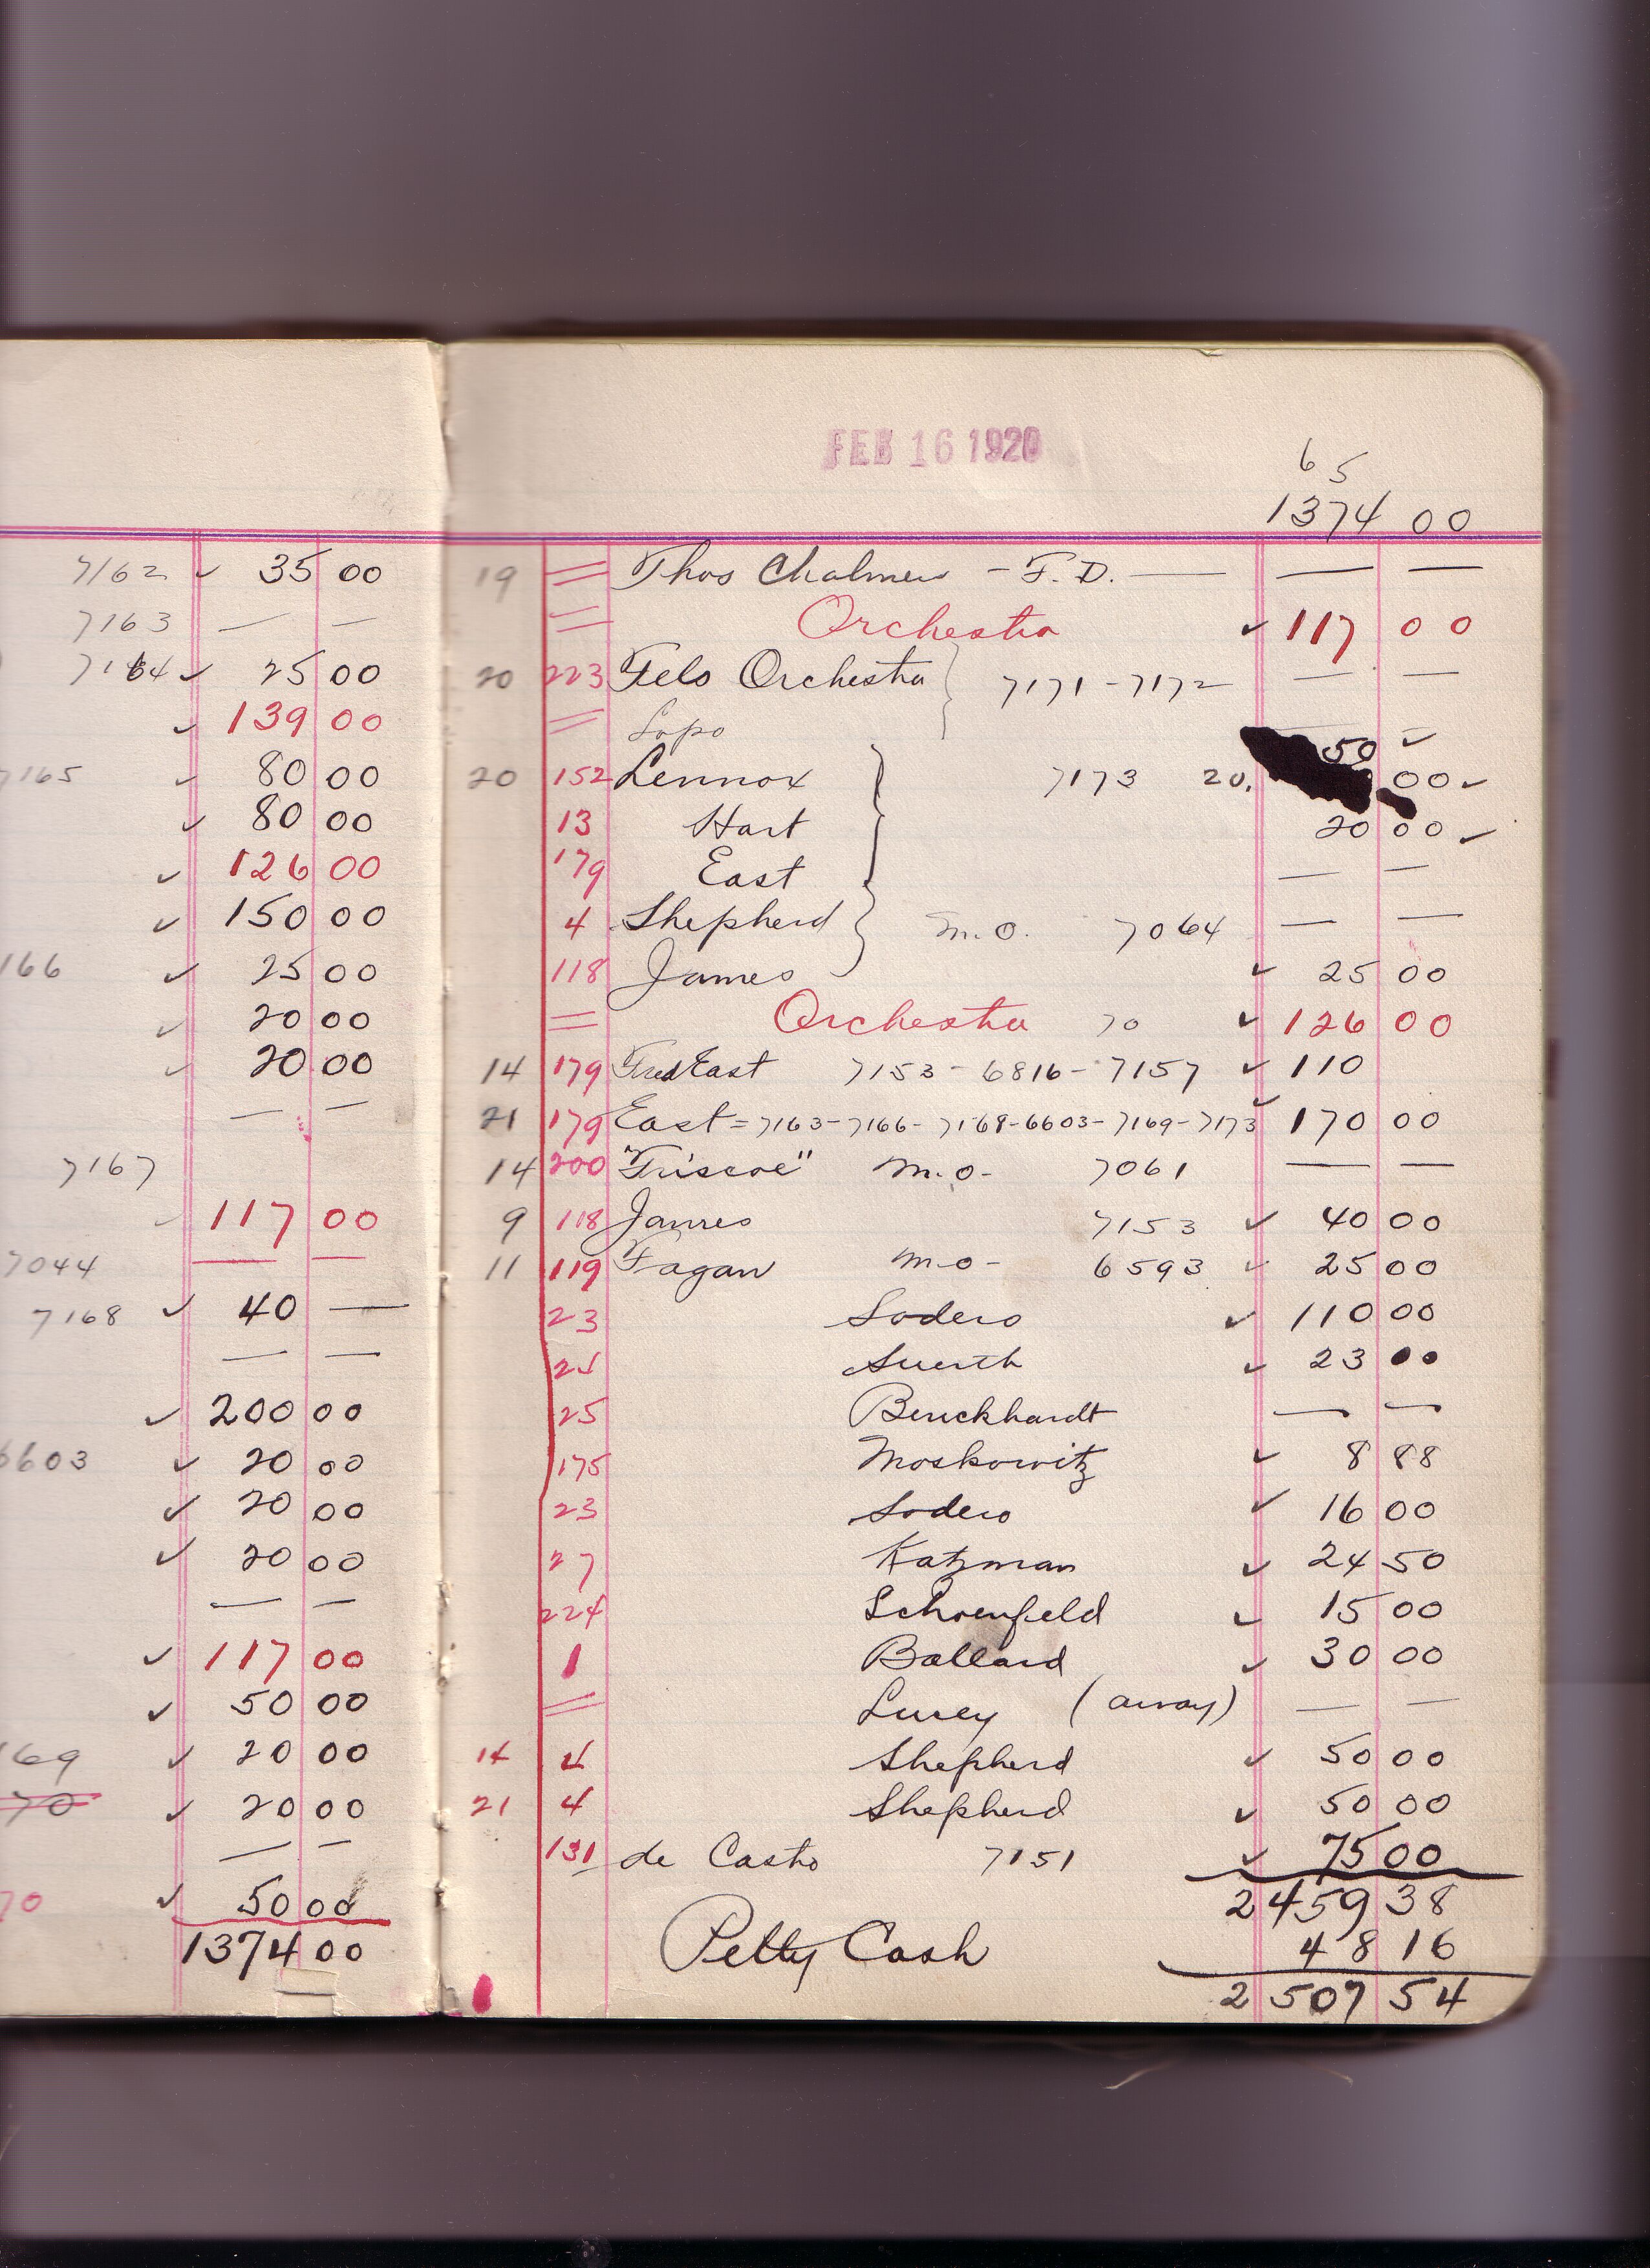 7162 ✓ 35 00
7163 — —
7164 ✓ 25 00
✓ 139 00
7165 ✓ 80 00
✓ 80 00
✓ 126 00
✓ 150 00
166 ✓ 25 00
✓ 20 00
✓ 20 00
— —
7167
✓ 117 00
7044 — —
7168 ✓ 40 —
— —
✓ 200 00
6603 ✓ 20 00
✓ 20 00
✓ 20 00
— —
✓ 117 00
✓ 50 00
169 ✓ 20 00
70 ✓ 20 00
— —
70 ✓ 50 00
1374 00
FEB 16 1920
65
1374 00
19 = Thos Chalmers - F.D. — — —
= Orchestra ✓ 117 00
20 223 Felo Orchestra } 7171 - 7172 — —
= Lopo — 50 ✓
20 152 Lennox } 7173 20. 00 ✓
13 Hart 20 00 ✓
179 East — —
4 Shepherd } m.o. 7064 — —
118 James ✓ 25 00
= Orchestra 70 ✓ 126 00
14 179 Fred East 7153 - 6816 - 7157 ✓ 110
21 179 East = 7163 - 7166 - 7168 - 6603 - 7169 - 7173 ✓ 170 00
14 200 "Friscoe" m.o- 7061 — —
9 118 James 7153 ✓ 40 00
11 119 Fagan m-o- 6593 ✓ 25 00
23 Sodero ✓ 110 00
✓ 23 00
25 Burckhardt — —
175 Moskowitz ✓ 8 88
23 Sodero ✓ 16 00
27 Katzman ✓ 24 50
224 Schoenfeld ✓ 15 00
1 Ballard ✓ 30 00
= Lucey (away) — —
14 4 Shepherd ✓ 50 00
21 4 Shepherd ✓ 50 00
131 de Casto 7151 ✓ 75 00
2459 38
Petty Cash 48 16
2507 54